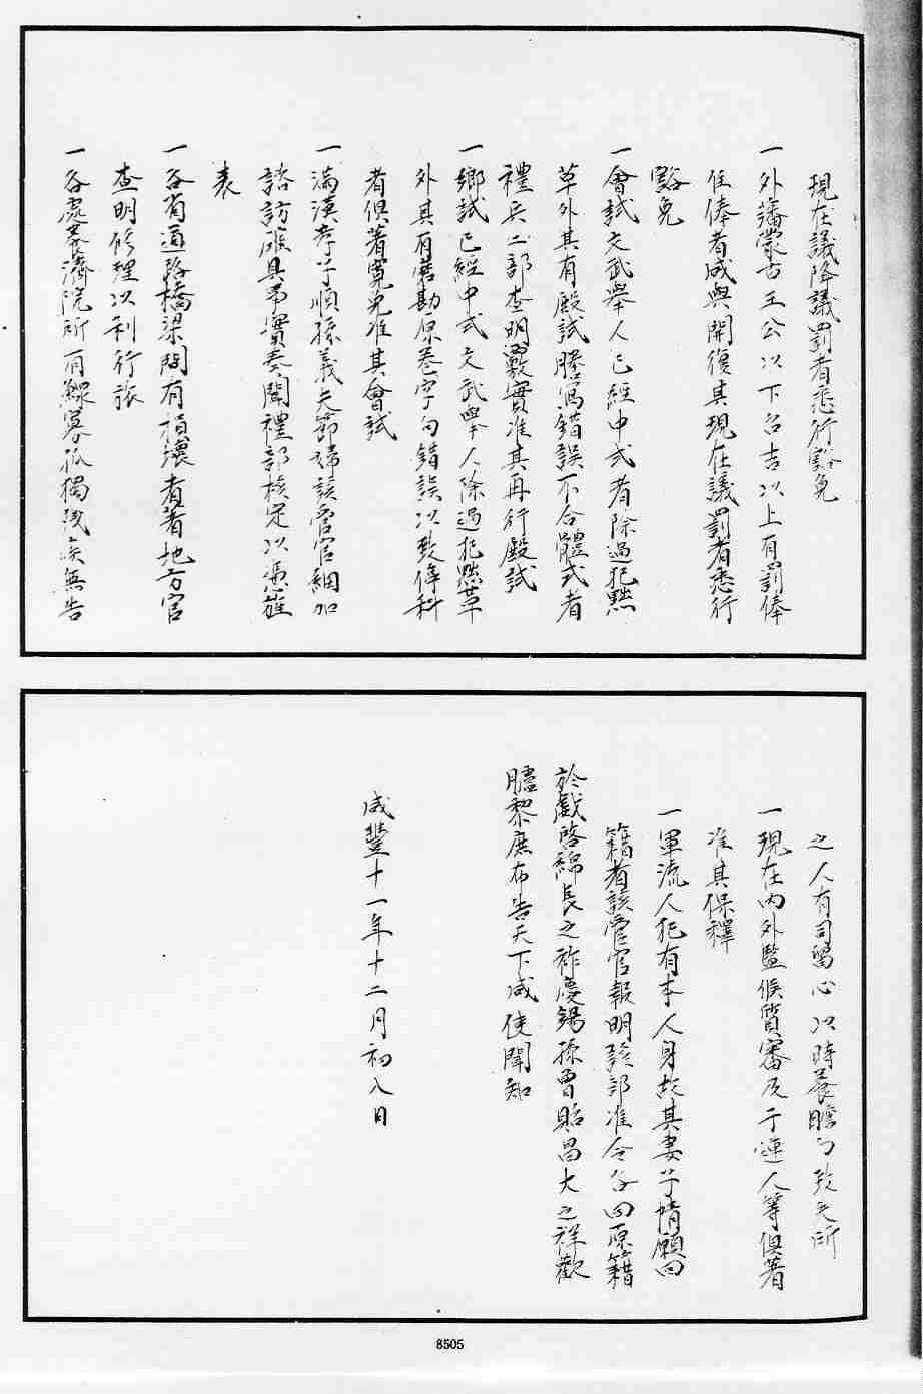 現在議降議罰者悉行豁免
一外藩蒙古王公以下台吉以上有罰俸
住俸者咸與開復其現在議罰者悉行
豁免
一會試文武舉人已經中式者除過犯黜
革外其有殿試謄寫錯誤不合體式者
禮兵二部查明覈實准其再行殿試
一鄉試已經中式文武舉人除過犯黜革
外其有磨勘原卷字句錯誤以致停科
者俱著寬免准其會試
一滿漢孝子順孫義夫節婦該管官細加
諮訪確具事實奏聞禮部核定以憑旌
表
一各省道路橋梁間有損壞者著地方官
查明修理以利行旅
一各處養濟院所有鰥寡孤獨殘疾無告
之人有司留心以時養贍勿致失所
一現在內外監候質審及干連人等俱著
准其保釋
一軍流人犯有本人身故其妻子情願回
籍者該管官報明該部准令各回原籍
於戲啓綿長之祚慶錫孫曾貽昌大之祥歡
臚黎庶布告天下咸使聞知
咸豐十一年十二月初八日
8505